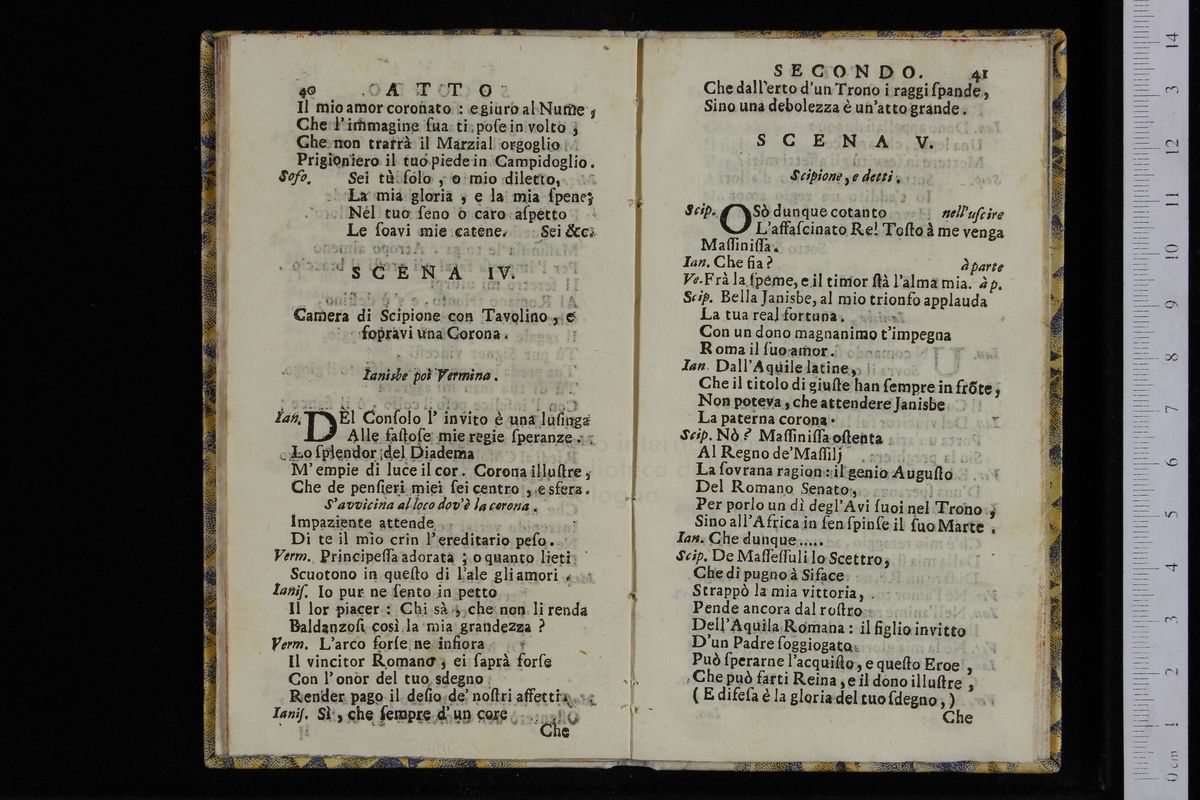 40 ATTO
Il mio amor coronato : e giuro al Nume ,
Che l'immagine ſua ti poſe in volto ,
Che non trarrà il Marzial orgoglio
Prigioniero il tuo piede in Campidoglio.
Sofo. Sei tù ſolo , o mio diletto,
La mia gloria , e la mia ſpene;
Nel tuo ſeno o caro aſpetto
Le ſoavi mie catene. Sei &c.
SCENA IV.
Camera di Scipione con Tavolino , e
ſopravi una Corona .
Ianisbe poi Vermina .
Ian. DEl Conſolo l' invito è una luſinga
Alle faſtoſe mie regie ſperanze .
Lo ſplendor del Diadema
M' empie di luce il cor. Corona illuſtre ,
Che de penſieri miei ſei centro , e sfera.
S'avvicina al loco dov'è la corona .
Impaziente attende
Di te il mio crin l'ereditario peſo.
Verm. Principeſſa adorata ; o quanto lieti
Scuotono in queſto di l'ale gli amori .
Ianiſ. Io pur ne ſento in petto
Il lor piacer : Chi sà , che non li renda
Baldanzoſi così la mia grandezza ?
Verm. L'arco forſe ne infiora
Il vincitor Romano , ei ſaprà forſe
Con l'onor del tuo sdegno
Render pago il deſio de' noſtri affetti.
Ianiſ. Sì , che ſempre d' un core
Che
SECONDO. 41
Che dall'erto d'un Trono i raggi ſpande,
Sino una debolezza è un'atto grande.
SCENA V.
Scipione , e detti .
Scip. OSò dunque cotanto nell'uſcire
L'affaſcinato Re! Toſto à me venga
Maſſiniſſa.
Ian. Che fia ? à parte
Ve. Frà la ſpeme, e il timor ſtà l'alma mia. à p.
Scip. Bella Janisbe, al mio trionfo applauda
La tua real fortuna.
Con un dono magnanimo t'impegna
Roma il ſuo amor.
Ian. Dall'Aquile latine,
Che il titolo di giuſte han ſempre in frõte,
Non poteva , che attendere Janisbe
La paterna corona.
Scip. Nò ? Maſſiniſſa oſtenta
Al Regno de' Maſſilj
La ſovrana ragion : il genio Auguſto
Del Romano Senato,
Per porlo un dì degl'Avi ſuoi nel Trono ,
Sino all'Africa in ſen ſpinſe il ſuo Marte .
Ian. Che dunque .....
Scip. De Maſſeſſuli lo Scettro,
Che di pugno à Siface
Strappò la mia vittoria,
Pende ancora dal roſtro
Dell'Aquila Romana : il figlio invitto
D'un Padre ſoggiogato
Può ſperarne l'acquiſto, e queſto Eroe ,
Che può farti Reina , e il dono illuſtre ,
( E difeſa è la gloria del tuo ſdegno , )
Che
0 cm 1 2 3 4 5 6 7 8 9 10 11 12 13 14